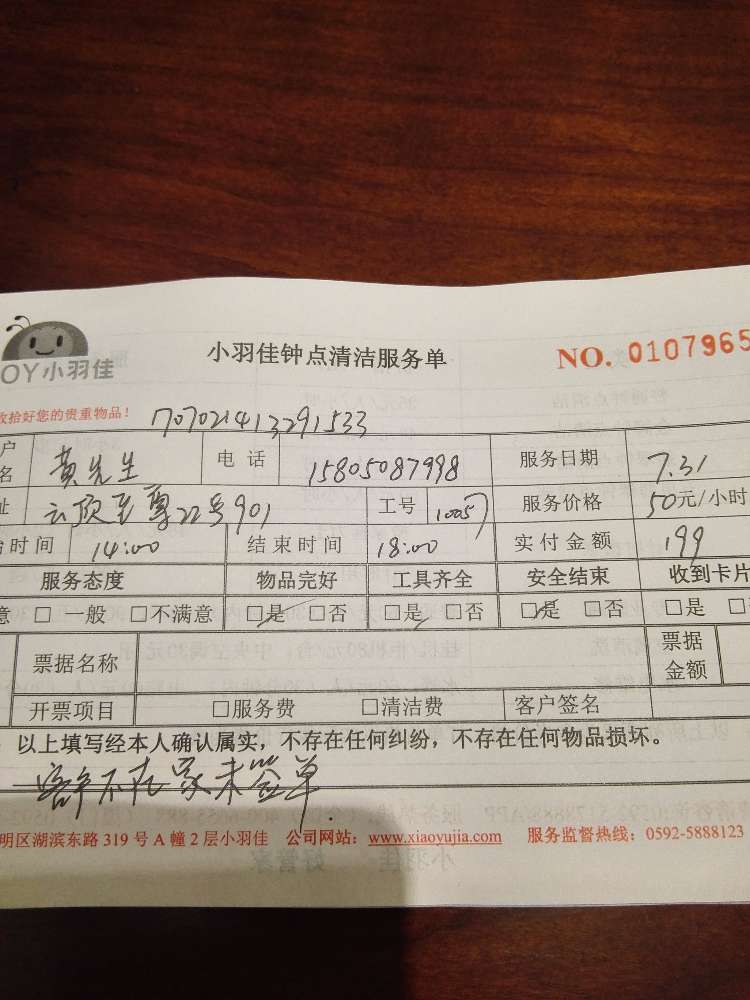 小羽佳钟点清洁服务单 NO. 0107965
OY小羽佳
收拾好您的贵重物品!
1707021413291533
户名 黄先生 电话 15805087998 服务日期 7.31
址 云顶至尊22号901 工号 10057 服务价格 50元/小时
始时间 14:00 结束时间 18:00 实付金额 199
服务态度 物品完好 工具齐全 安全结束 收到卡片
意 □一般 □不满意 □是 □否 □是 □否 □是 □否 □是 □
票据名称 票据金额
开票项目 □服务费 □清洁费 客户签名
以上填写经本人确认属实，不存在任何纠纷，不存在任何物品损坏。
客户不在家未签单
明区湖滨东路 319 号 A 幢 2 层小羽佳 公司网站：www.xiaoyujia.com 服务监督热线：0592-5888123